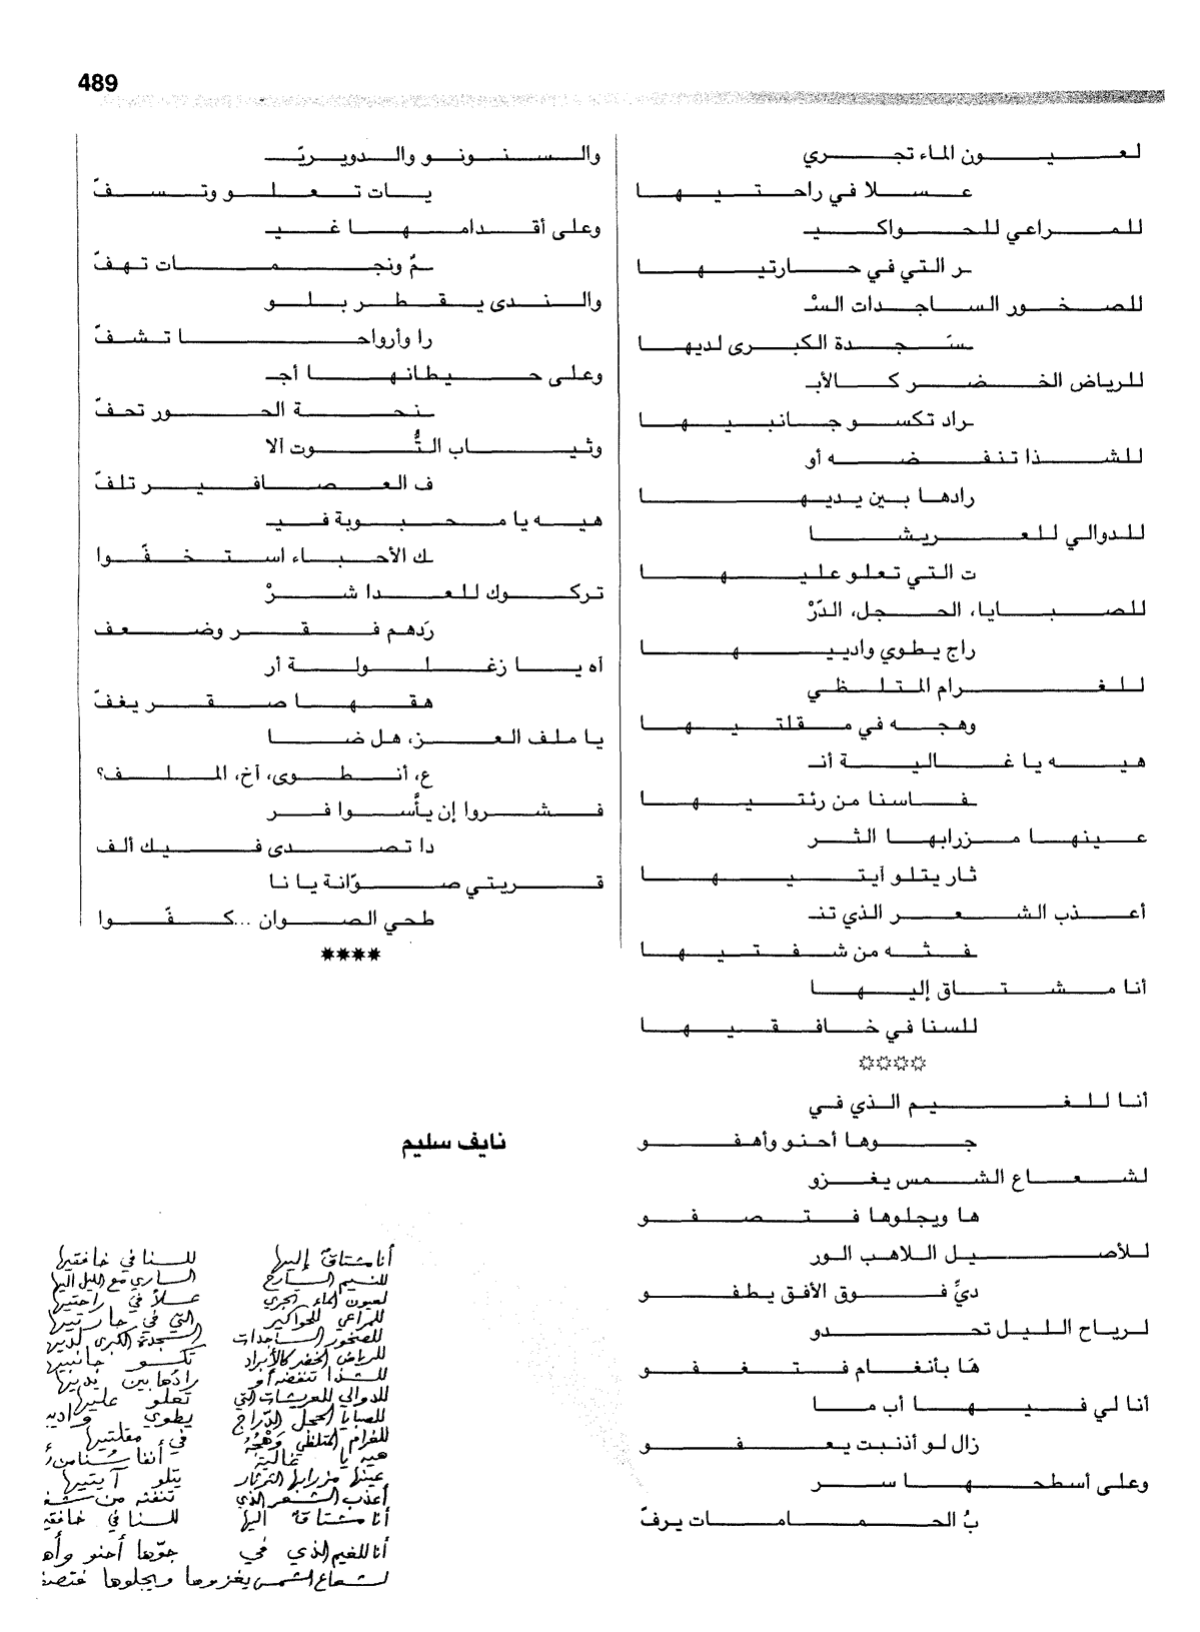 489
لعيون الماء تجري
عسلا في راحتيها
للمراعي للحواكيـ
ـر التي في حارتيها
للصخور الساجدات السْـ
ـسَجدة الكبرى لديها
للرياض الخضر كالأبـ
ـراد تكسو جانبيها
للشذا تنفضه أو
رادها بين يديها
للدوالي للعريشا
ت التي تعلو عليها
للصبايا، الحجل، الدّرْ
راج يطوي وادييها
للغرام المتلظي
وهجه في مقلتيها
هيه يا غالية أنـ
ـفاسنا من رئتيها
عينها مزرابها الثر
ثار يتلو آيتيها
أعذب الشعر الذي تنـ
ـفثه من شفتيها
أنا مشتاق إليها
للسنا في خافقيها
۞۞۞۞
أنا للغيم الذي في
جوها أحنو وأهفو
لشعاع الشمس يغزو
ها ويجلوها فتصفو
للأصيل اللاهب الور
ديِّ فوق الأفق يطفو
لرياح الليل تحدو
هَا بأنغام فتغفو
أنا لي فيها أب ما
زال لو أذنبت يعفو
وعلى أسطحها سر
بُ الحمامات يرفّ
والسنونو والدويريّـ
ـيات تعلو وتسفّ
وعلى أقدامها غيـ
ـمٌ ونجمات تهفّ
والندى يقطر بلو
را وأرواحا تشفّ
وعلى حيطانها أجـ
ـنحة الحور تحفّ
وثياب التُّوت آلا
ف العصافير تلفّ
هيه يا محبوبة فيـ
ـك الأحباء استخفّوا
تركوك للعدا شرْ
رَدهم فقر وضعف
آه يا زغلولة أر
هقها صقر يغفّ
يا ملف العز، هل ضا
ع، أنطوى، آخ، الملف؟
فشروا إن يأَسوا فر
دا تصدى فيك ألف
قريتي صوّانة يا نا
طحي الصوان ...كفّوا
✷✷✷✷
نايف سليم
أنا مشتاقٌ إليها للسنا في خافقيها
للنسيم الساري مع الليل اليها
لعيون الماء تجري عسلاً في راحتيها
للمراعي للحواكير التي في حارتيها
للصخور الساجدات السجدة الكبرى لديها
للرياض الخضر كالأبراد تكسو جانبيها
للشذا تنفضه أو رادها بين يديها
للدوالي للعريشات التي تعلو عليها
للصبايا الحجل الدّراج يطوي واديـ
للغرام المتلظي وَهْجُهُ في مقلتيها
هيه يا غالية أنفاسُنا من
عينها مزرابها الثرثار يتلو آيتيها
أعذب الشعر الذي تنفثه من شفـ
أنا مشتاقٌ اليها للسنا في خافقيـ
أنا للغيم الذي في جوّها أحنو وأهـ
لشعاع الشمس يغزوها ويجلوها فتصفـ